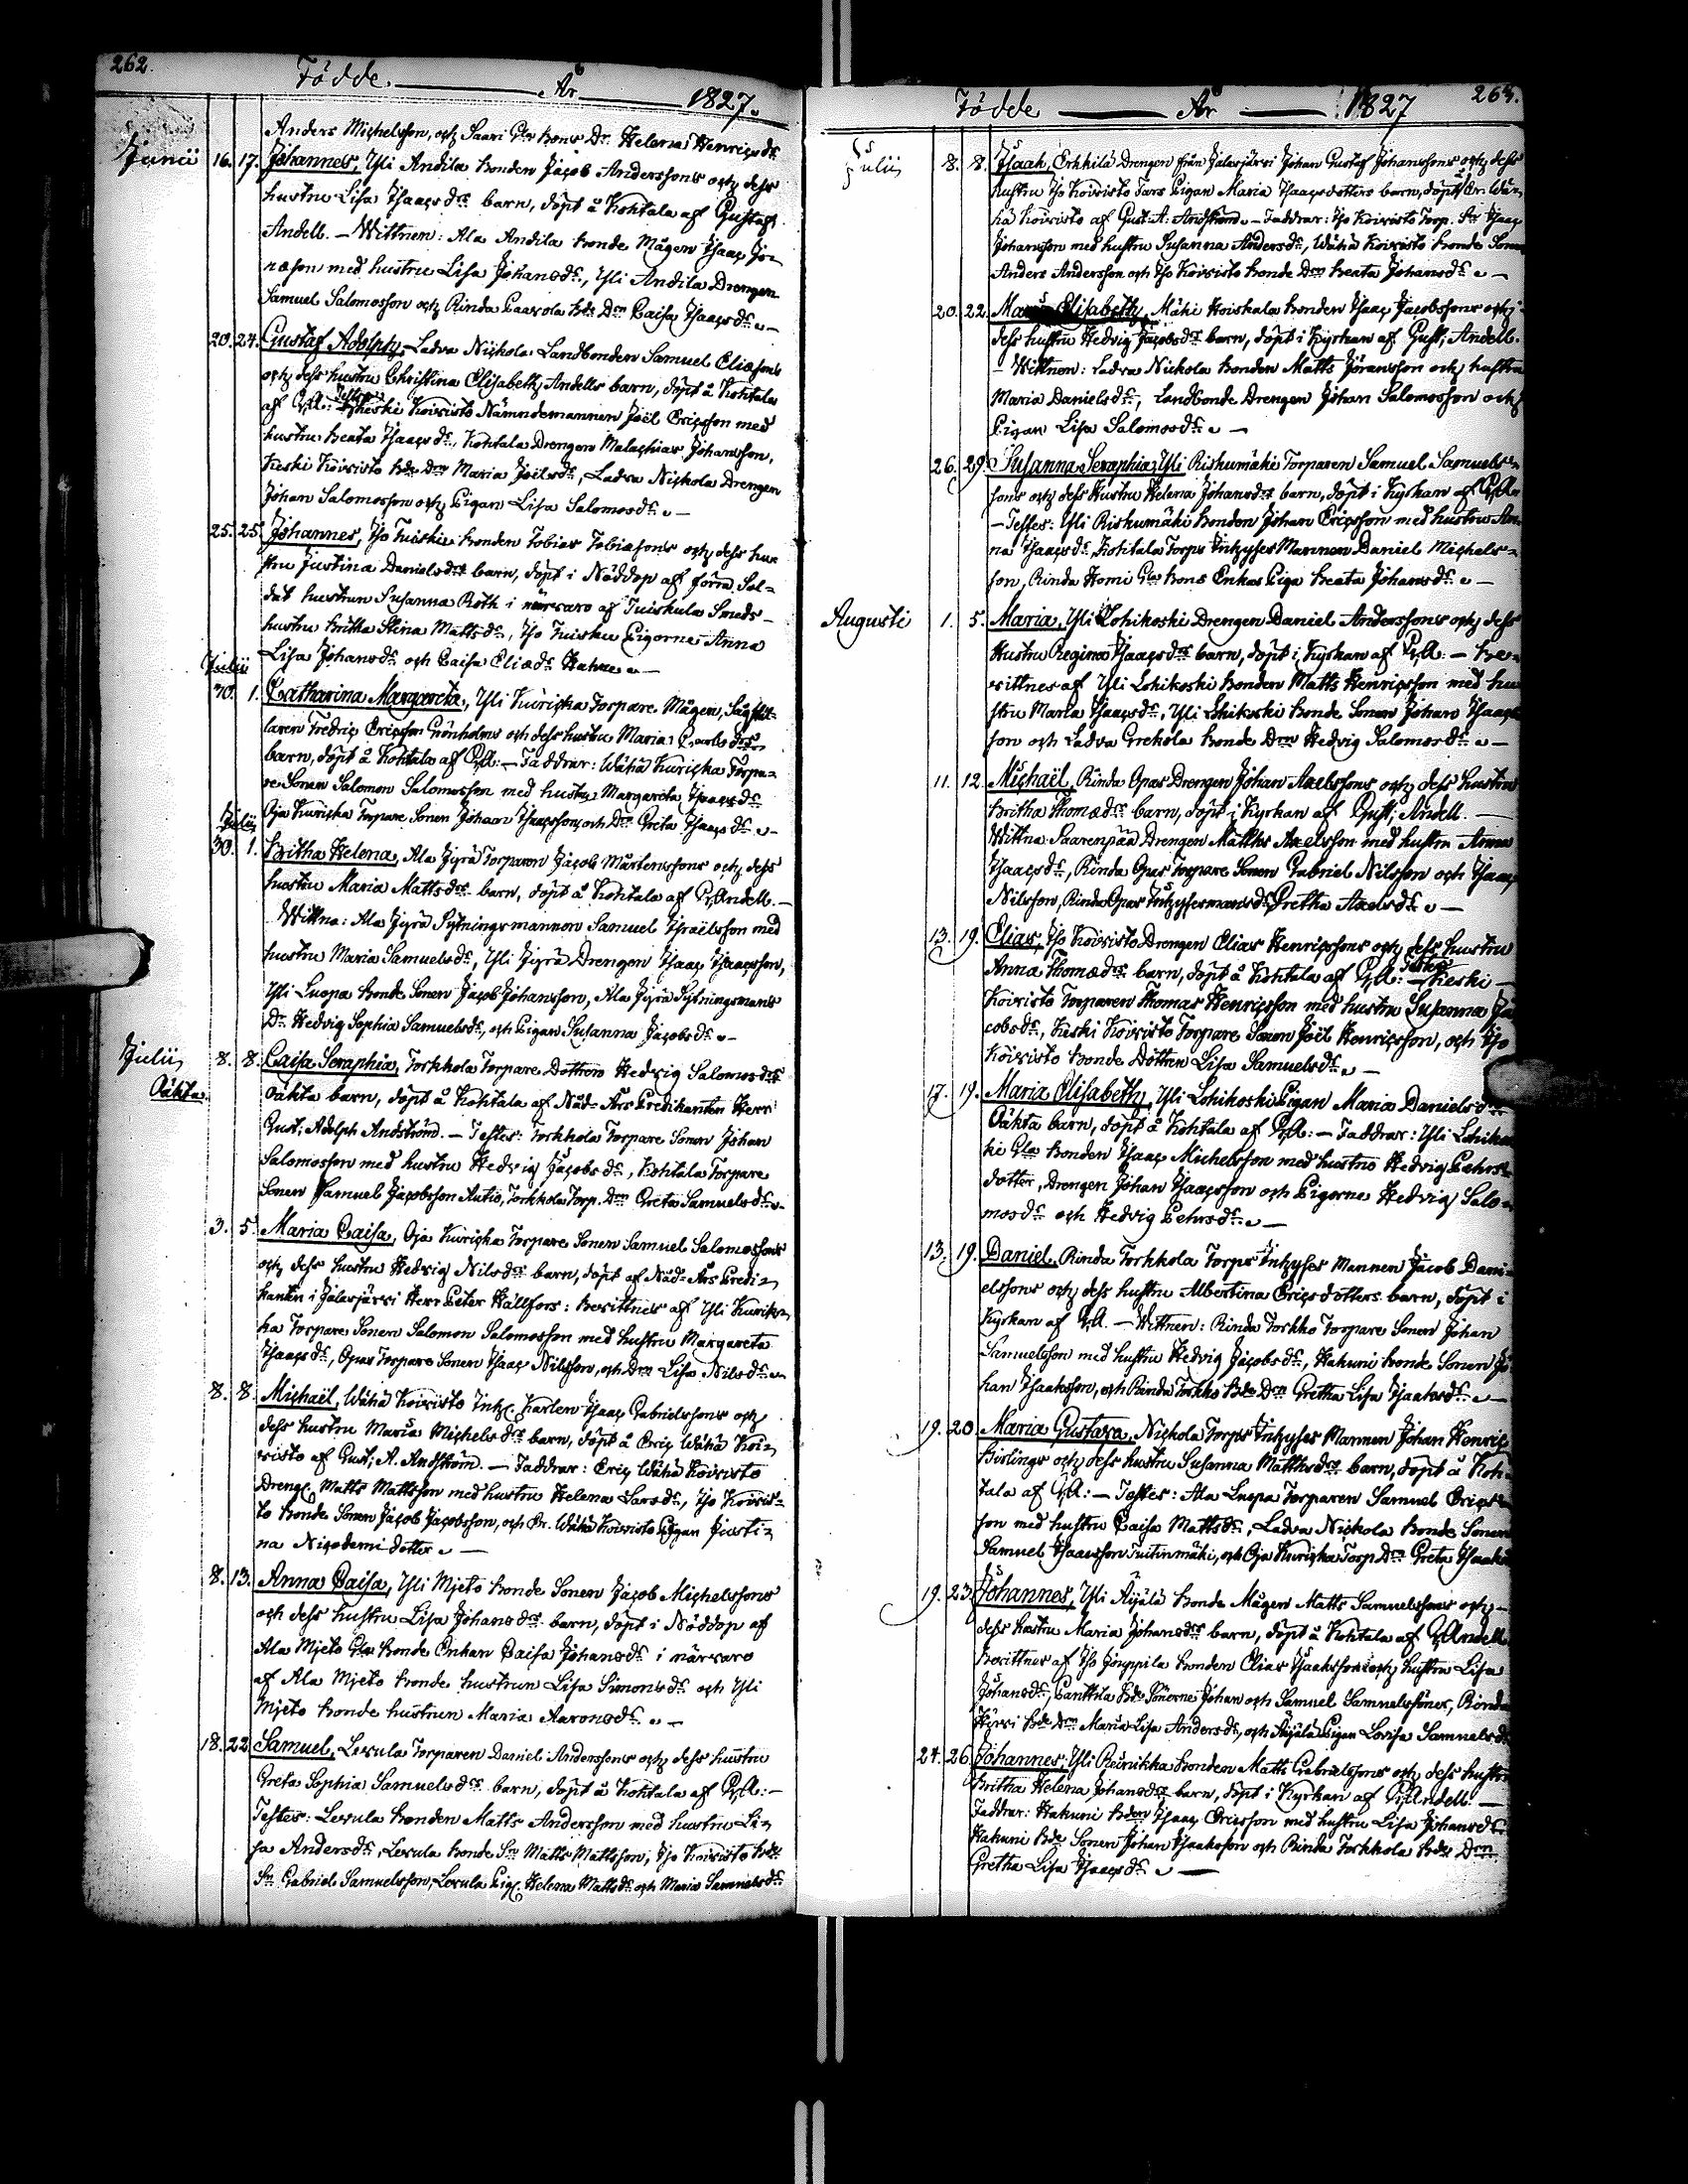 262.
Födde. ——— År ——— 1827.
Anders Michelsson, och Saari Gla Bons Dr. Helena Henricsdr
Junii 16. 17. Johannes, Yli Andila Bonden Jacob Anderssons och dess
hustru Lisa Isaacsdrs barn, döpt å Kohtala af Gustaf
Andell. – Wittnen: Ala Andila Bonde Mågen Isaac Jo-
næson med hustru Lisa Johansdr, Yli Andila Drengen
Samuel Salomosson och Rinda Paavola Bde Drn Caisa Isaacsdr
20. 24. Gustaf Adolph, Ladva Nickola Landbonden Samuel Eliæsons
och dess hustru Christina Elisabeth Andells barn, döpt å Kohtala
af G.A: Testes: Keski Koivisto Nämndemannen Joël Ericsson med
hustru Beata Isaacsdr, Kohtala Drengen Malachias Johansson,
Keski Koivisto Bde Drn Maria Joëlsdr, Ladva Nickola Drengen
Johan Salomosson och Pigan Lisa Salomosdr
25. 25. Johannes, Iso Tuisku Bonden Tobias Tobiæsons och dess hu-
stru Justina Danielsdrs barn, döpt i Nöddop af förra Sol-
dat hustrun Susanna Roth i närvaro af Tuiskula Smeds-
hustru Britha Stina Mattsdr, Iso Tuisku Pigorne Anna
Lisa Johansdr och Caisa Eliædr Hahne
Julii
30. 1. Catharina Margareta, Yli Kuricka Torpare Mågen,
laren Fredric Ericsson Grönholms och dess hustru Maria Carlsdrs
barn, döpt å Kohtala af G.A: – Faddrar: Wähä Kuricka Torpa-
re Sonen Salomon Salomosson med hustru Margareta Isaacsdr
Oja Kuricka Torpare Sonen Johan Isaacsson, och Drn Greta Isaacsdr
Julii
30. 1. Britha Helena, Ala Jyrä Torparen Jacob Mårtenssons och dess
hustru Maria Mattsdrs barn, döpt å Kohtala af G.Andell. –
Wittna: Ala Jyrä Sytningsmannen Samuel Israëlsson med
hustru Maria Samuelsdr, Yli Jyrä Drengen Isaac Isaacsson,
Yli Luopa Bonde Sonen Jacob Johansson, Ala Jyrä Sytningsmans
Dr. Hedvig Sophia Samuelsdr, och Pigan Susanna Jacobsdr
Julii 8. 8. Caisa Seraphia, Torkkola Torpare Dottrens Hedvig Salomosdrs
Oäkta
Oäkta barn, döpt å Kohtala af Nåd-Års Predikanten Herr
Gust: Adolph Andström. – Testes: Torkkola Torpare Sonen Johan
Salomosson med hustru Hedvig Jacobsdr, Kohtala Torpare
Sonen Samuel Jacobsson Autio, Torkkola Torp. Drn Greta Samuelsdr
3. 5. Maria Caisa, Oja Kuricka Torpare Sonen Samuel Salomossons
och dess hustru Hedvig Nilsdrs barn, döpt af Nåd-Års Predi-
kanten i Jalasjärvi Herr Peter Hällfors: Bevittnes af Yli Kurik-
ka Torpare Sonen Salomon Salomosson med hustru Margareta
Isaacsdr, Opas Torpare Sonen Isaac Nilsson, och Drn Lisa Nilsdr
8. 8. Michaël, Wähä Koivisto Inh: Karlen Isaac Gabrielssons och
dess hustru Maria Michelsdrs barn, döpt å Eric Wähä Koi-
visto af Gust: A. Andström. – Faddrar: Eric Wähä Koivisto
Dreng: Matts Mattsson med hustru Helena Larsdr, Iso Koivis-
to Bonde Sonen Jacob Jacobsson, och Er. Wähä Koivisto Pigan Justi-
na Nicodemidotter
8. 13. Anna Caisa, Yli Mjeto Bonde Sonen Jacob Michelssons
och dess hustru Lisa Johansdrs barn, döpt i Nöddop af
Ala Mjeto Gla Bonde Enkan Caisa Johansdr i närvaro
af Ala Mjeto Bonde hustrun Lisa Simonsdr och Yli
Mjeto Bonde hustrun Maria Aaronsdr
18. 22. Samuel, Levula Torparen Daniel Anderssons och dess hustru
Greta Sophia Samuelsdrs barn, döpt å Kohtala af G.A: –
Testes: Levula Bonden Matts Andersson med hustru Li-
sa Andersdr, Levula Bonde Sn Matts Mattsson, Iso Koivisto Bde
Sn Gabriel Samuelsson, Levula Pig: Helena Mattsdr och Maria Samuelsdr
Födde ——— År ——— 1827 263.
Julii 8. 8. Isaak, Erkkilä Drengen från Jalasjärvi Johan Gustaf Johanssons och dess
hustru Iso Koivisto Torps Pigan Maria Isaacsdotters barn, döpt å Er. Wä-
hä Koivisto af Gust: A: Andström – Faddrar: Iso Koivisto Torp. Sn Isaac
Johansson med hustru Susanna Andersdr, Wähä Koivisto Bonde Sonen
Anders Andersson och Iso Koivisto Bonde Drn Beata Johansdr
20. 22. Maria Elisabeth, Mäki Koiskala Bonden Isaac Jacobssons och
dess hustru Hedvig Jacobsdrs barn, döpt i Kyrkan af Gust: Andell.
– Wittnen: Ladva Nickola Bonden Matts Jöransson och hustru
Maria Danielsdr, Landbonde Drengen Johan Salomosson och
Pigan Lisa Salomosdr
26. 29. Susanna Seraphia, Yli Riskumäki Torparen Samuel Samuels-
sons och dess Hustru Helena Johansdrs barn, döpt i Kyrkan af G.A:
– Testes: Yli Riskumäki Bonden Johan Ericsson med hustru An-
na Isaacsdr, Kohtala Torps Inhyses Mannen Daniel Michels-
son, Rinda Komi Gla Bons Enkas Piga Beata Johansdr
Augusti 1. 5. Maria, Yli Lohikoski Drengen Daniel Anderssons och dess
Hustru Regina Isaacsdrs barn, döpt i Kyrkan af G.A: – Be-
vittnes af Yli Lohikoski Bonden Matts Henricsson med hu-
stru Maria Isaacsdr, Yli Lohikoski Bonde Sonen Johan Isaacs-
son och Ladva Grekola Bonde Drn Hedvig Salomosdr
11. 12. Michaël, Rinda Opas Drengen Johan Axelssons och dess hustru
Britha Thomædrs barn, döpt i Kyrkan af Gust: Andell. –
Wittna Saarenpää Drengen Matths Axelsson med hustru Anna
Isaacsdr, Rinda Opas Torpare Sonen Gabriel Nilsson och Isaac
Nilsson, Rinda Opas Inhysesmansdr Gretha Axelsdr
13. 19. Elias, Iso Koivisto Drengen Elias Henricssons och dess hustru
Anna Thomædrs barn, döpt å Kohtala af G.A: – Testes: Keski
Koivisto Torparen Thomas Henricsson med hustru Susanna Ja-
cobsdr, Keski Koivisto Torpare Sonen Joël Henricsson, och Iso
Koivisto Bonde Dottren Lisa Samuelsdr
17. 19. Maria Elisabeth, Yli Lohikoski Pigan Maria Danielsdrs
Oäkta barn, döpt å Kohtala af G.A: – Faddrar: Yli Lohikos-
ki Gla Bonden Isaac Michelsson med hustru Hedvig Pehrs-
dotter, Drengen Johan Isaacsson och Pigorne Hedvig Salo-
mosdr och Hedvig Pehrsdr
13. 19. Daniel, Rinda Torkkola Torps Inhyses Mannen Jacob Dani-
elssons och dess hustru Albertina Ericsdotters barn, döpt i
Kyrkan af G.A. – Wittnen: Rinda Torkko Torpare Sonen Johan
Samuelsson med hustru Hedvig Jacobsdr, Hakuni Bonde Sonen Jo-
han Isaaksson, och Rinda Torkko Bde Drn Gretha Lisa Isaaksdr
19. 20. Maria Gustava, Nickola Torps Inhyses Mannen Johan Henric
Birlings och dess hustru Susanna Matthsdrs barn, döpt å Koh-
tala af G.A: – Testes: Ala Luopa Torparen Samuel Erics-
son med hustru Caisa Mattsdr, Ladva Nickola Bonde Sonen
Samuel Isaacsson Tuitinmäki, och Oja Kuricka Torp Drn Greta Isaaks
19. 23. Johannes, Yli Äijälä Bonde Mågen Matts Samuelssons och
dess hustru Maria Johansdrs barn, döpt å Kohtala af G.Andell
Bevittnes af Iso Jouppila Bonden Elias Isaaksson och hustru Lisa
Johansdr, Panttila Bde Sönerne Johan och Samuel Samuelssöner, Rinda
Hyrri Bde Drn Maria Lisa Andersdr, och Äijälä Pigan Lovisa Samuelsdr
24. 26. Johannes, Yli Reinikka Bonden Matts Gabrielssons och dess hustru
Britha Helena Johansdrs barn, döpt i Kyrkan af G.Andell. –
Faddrar: Hakuni Bden Isaac Ericsson med hustru Lisa Johansdr
Hakuni Bde Sonen Johan Isaaksson och Rinda Torkkola Bde Drn
Gretha Lisa Isaacsdr